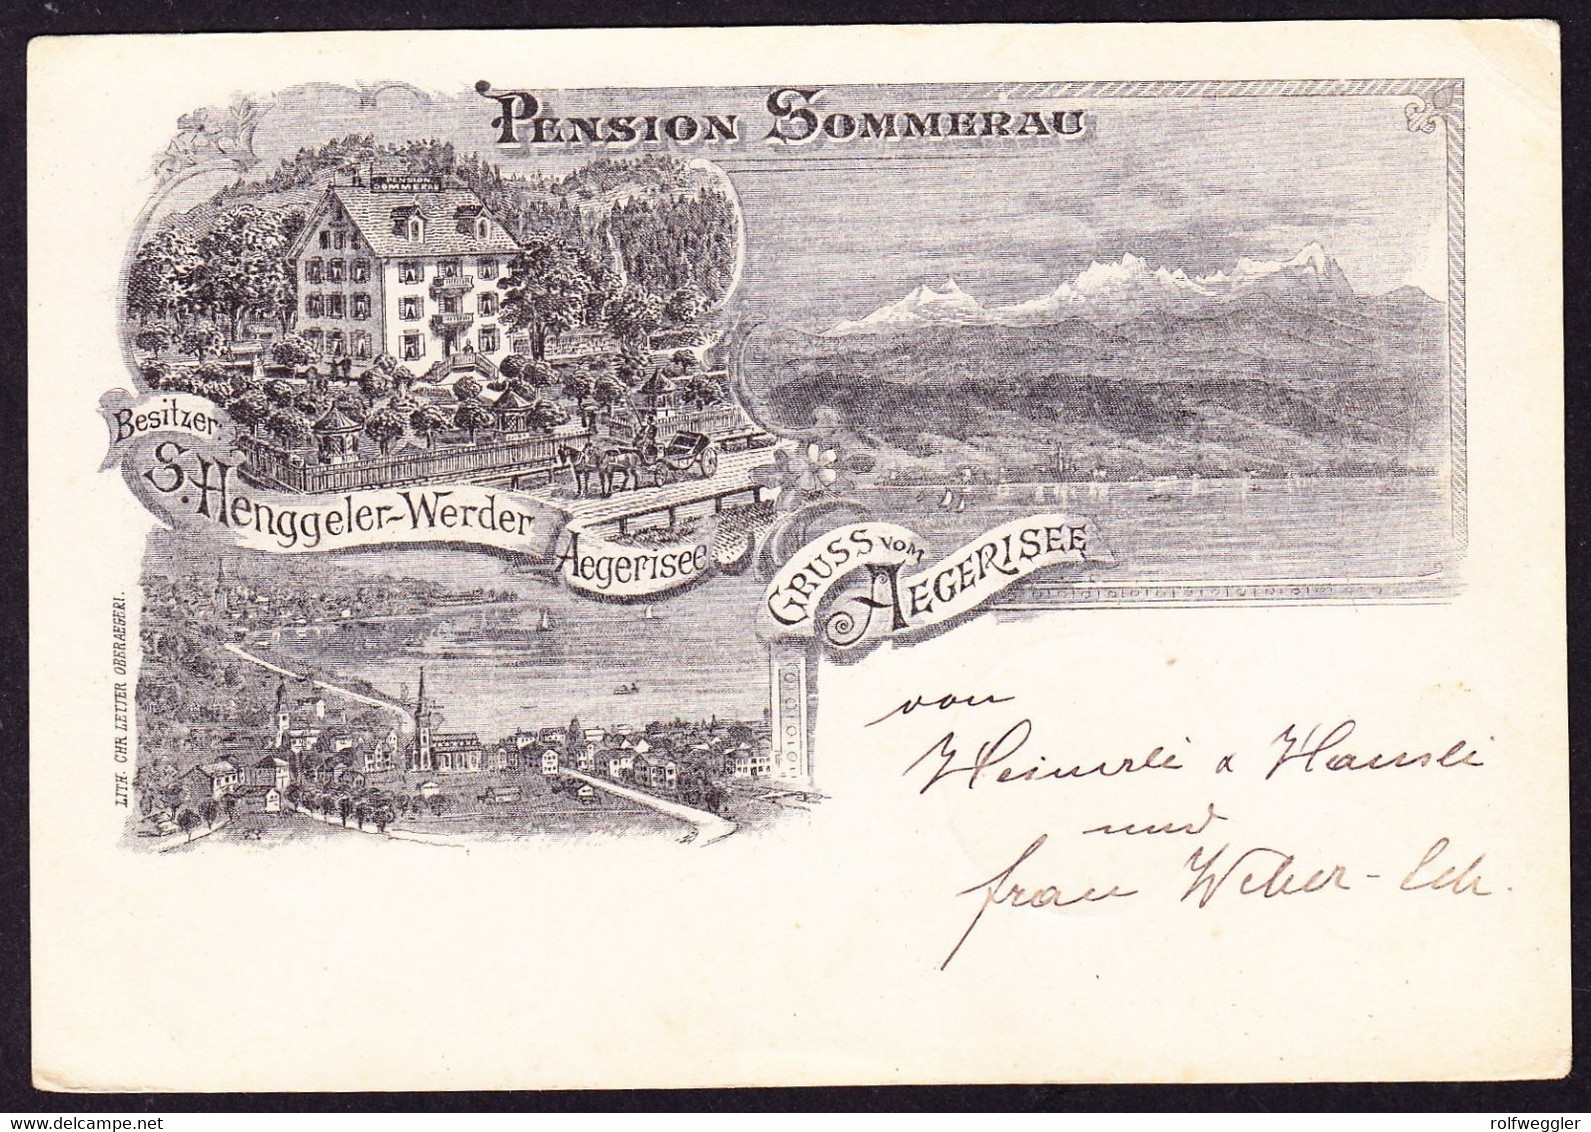 PENSION SOMMERAU
PENSION
SOMMERAU
Besitzer
S. Henggeler-Werder
Aegerisee
GRUSS VOM
AEGERISEE
LITH. CHR LEUTER OBERAEGERI.
von
Heinerli & Hansli
und
frau Weber-Sch.
www.delcampe.net
rolfweggler